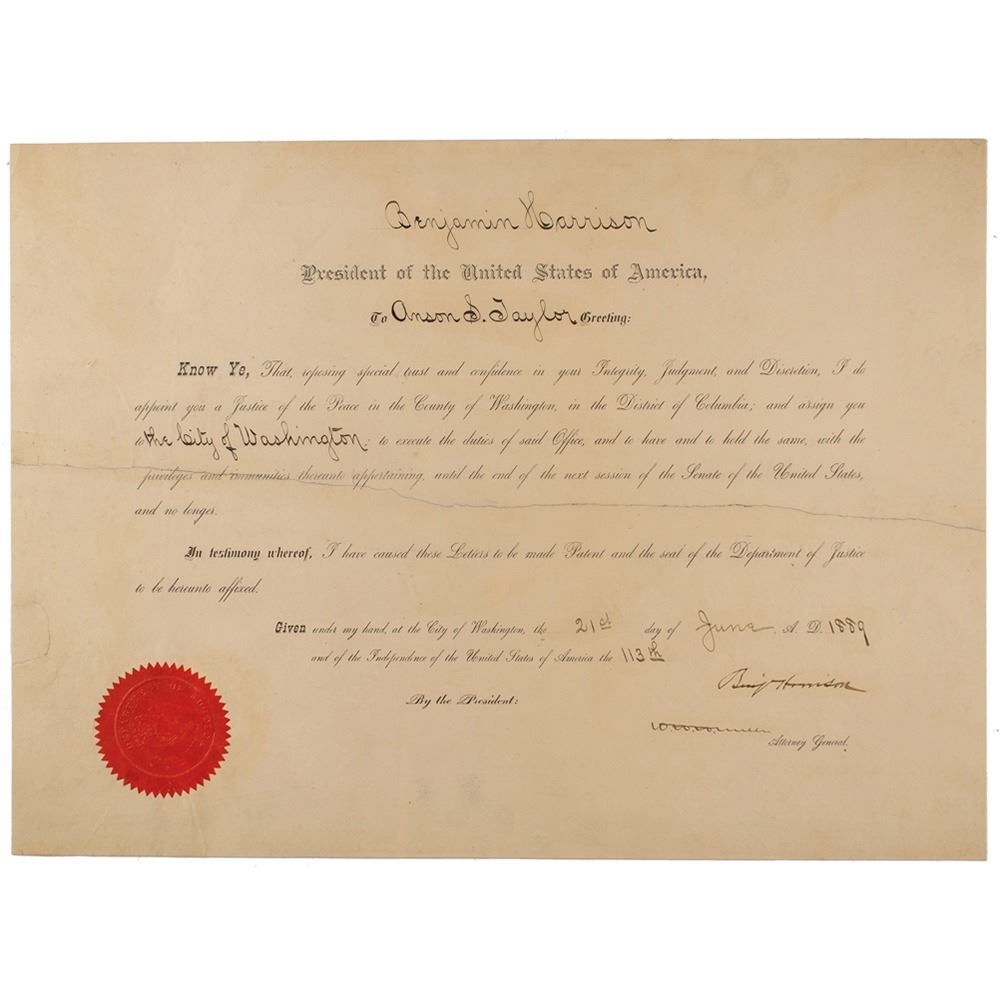 Benjamin Harrison
President of the United States of America,
To Anson S. Taylor Greeting:
Know Ye, That, reposing special trust and confidence in your Integrity, Judgment, and Discretion, I do
appoint you a Justice of the Peace in the County of Washington, in the District of Columbia; and assign you
to the City of Washington; to execute the duties of said Office, and to have and to hold the same, with the
privileges and immunities thereunto appertaining, until the end of the next session of the Senate of the United States,
and no longer.
In testimony whereof, I have caused these Letters to be made Patent and the seal of the Department of Justice
to be hereunto affixed.
Given under my hand, at the City of Washington, the 21st day of June, A. D. 1889
and of the Independence of the United States of America the 113th
Benj Harrison
By the President:
Attorney General.